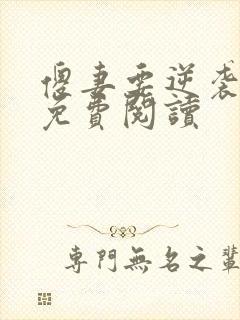 傻妻要逆袭
免費閱讀
專門無名之輩